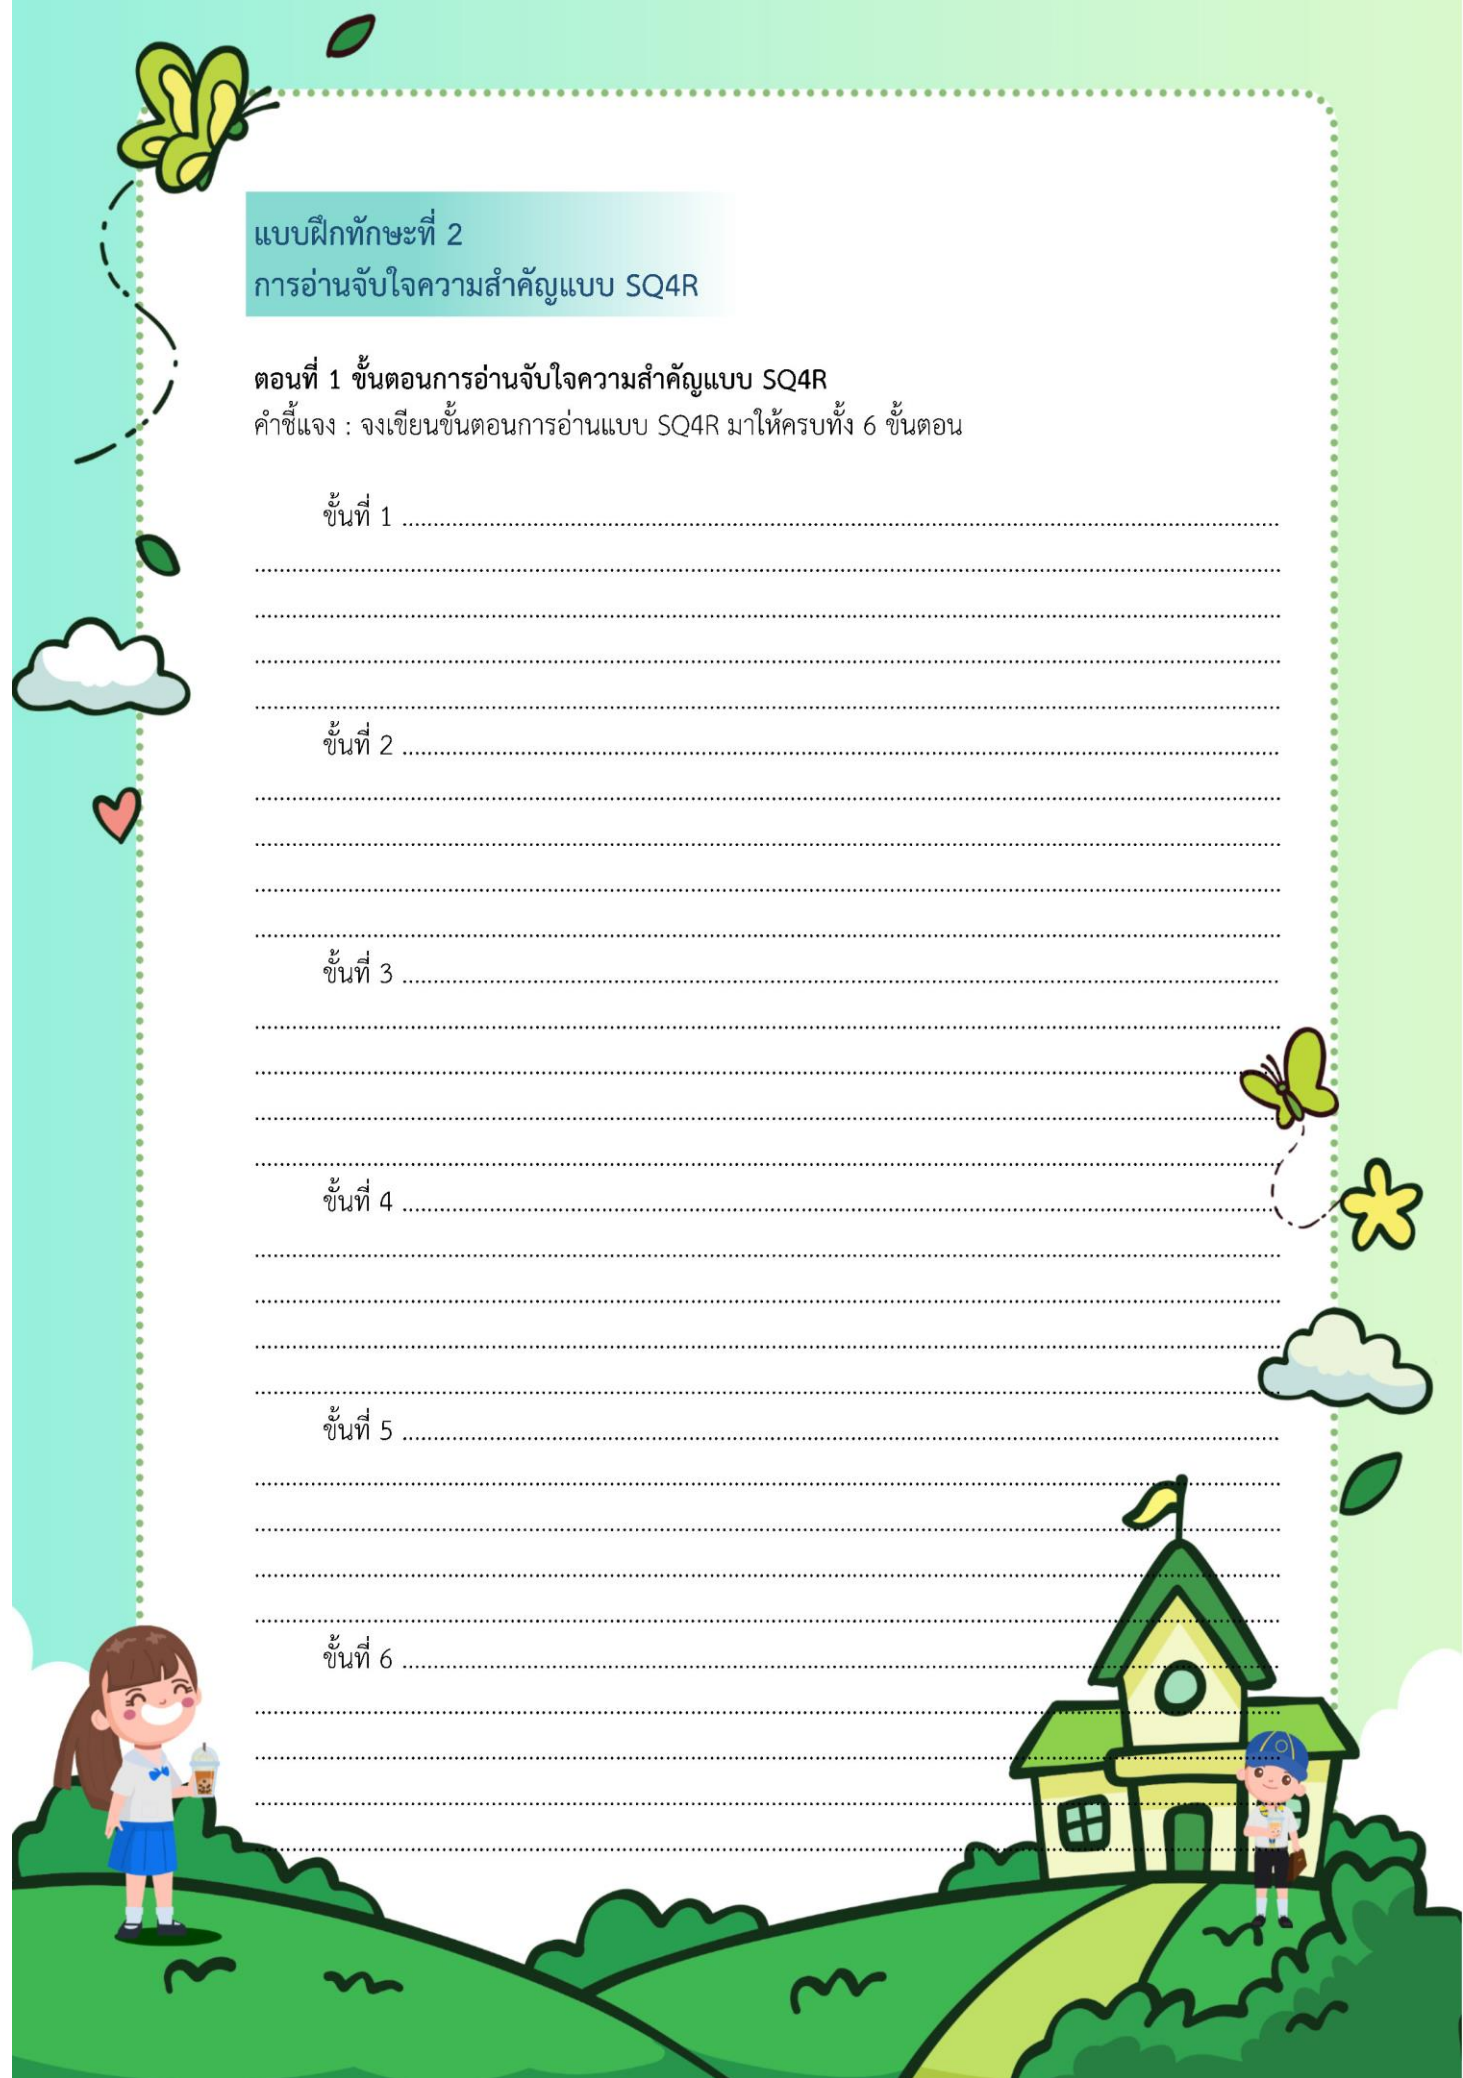 แบบฝึกทักษะที่ 2
การอ่านจับใจความสำคัญแบบ SQ4R
ตอนที่ 1 ขั้นตอนการอ่านจับใจความสำคัญแบบ SQ4R
คำชี้แจง : จงเขียนขั้นตอนการอ่านแบบ SQ4R มาให้ครบทั้ง 6 ขั้นตอน
ขั้นที่ 1
ขั้นที่ 2
ขั้นที่ 3
ขั้นที่ 4
ขั้นที่ 5
ขั้นที่ 6